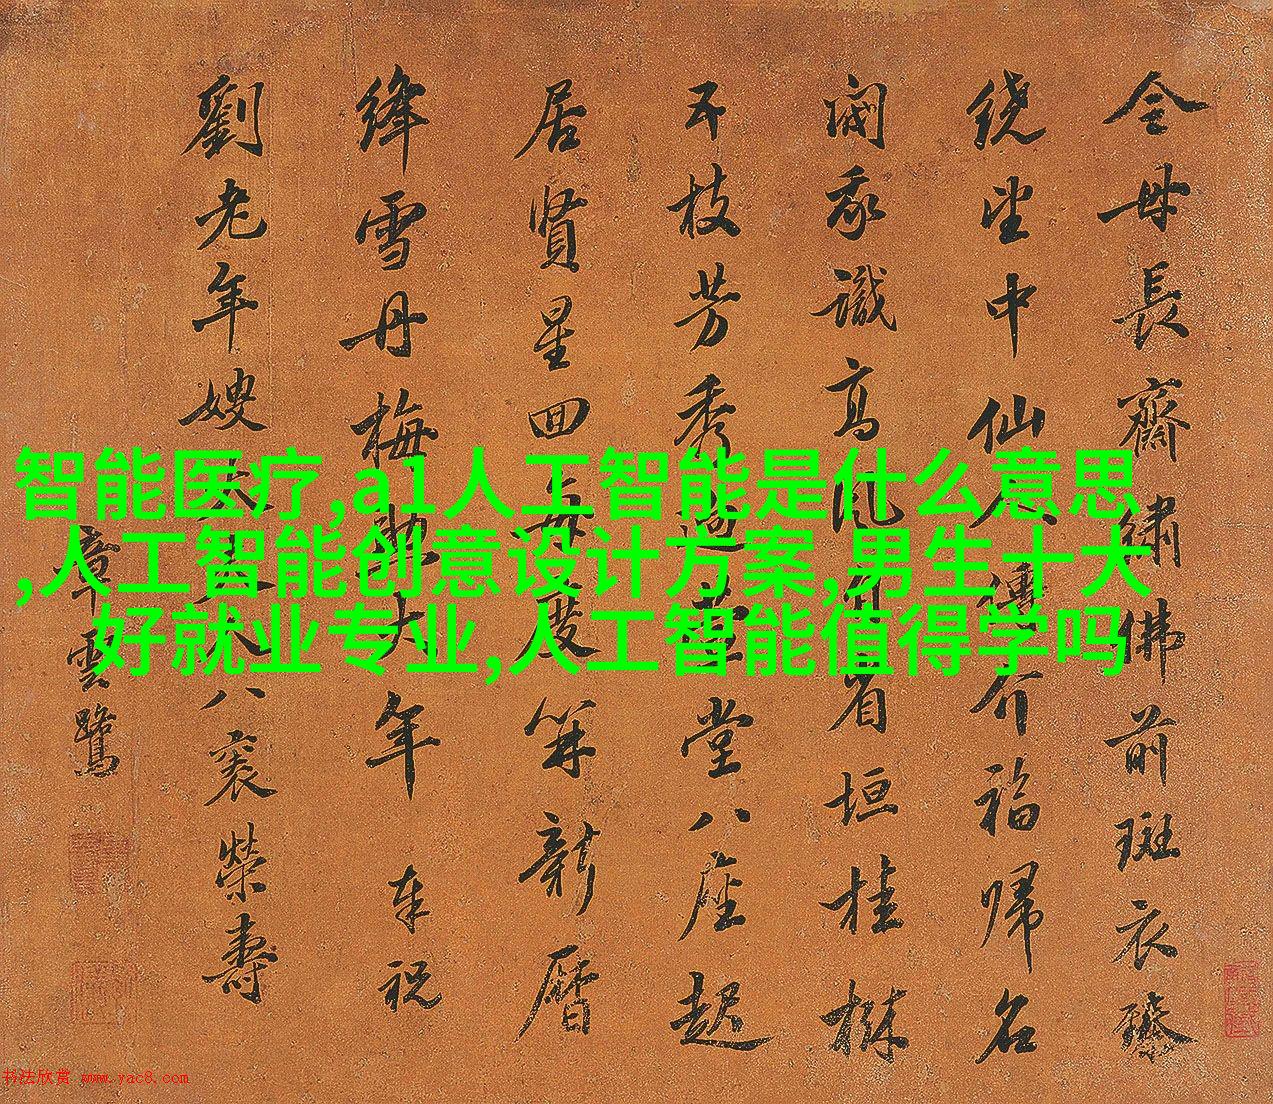 母長齋繡佛前斑衣
繞坐中仙介福歸名
閥識高風省垣桂林
五枝芳秀堂八座起
居賢星回度算新曆
絳雪丹梅大年 奉祝
劉老年嫂太人八袠榮壽
章雲鷺
智能医疗,a1人工智能是什么意思
,人工智能创意设计方案,男生十大
好就业专业,人工智能值得学吗
书法欣赏 www.yac8.com